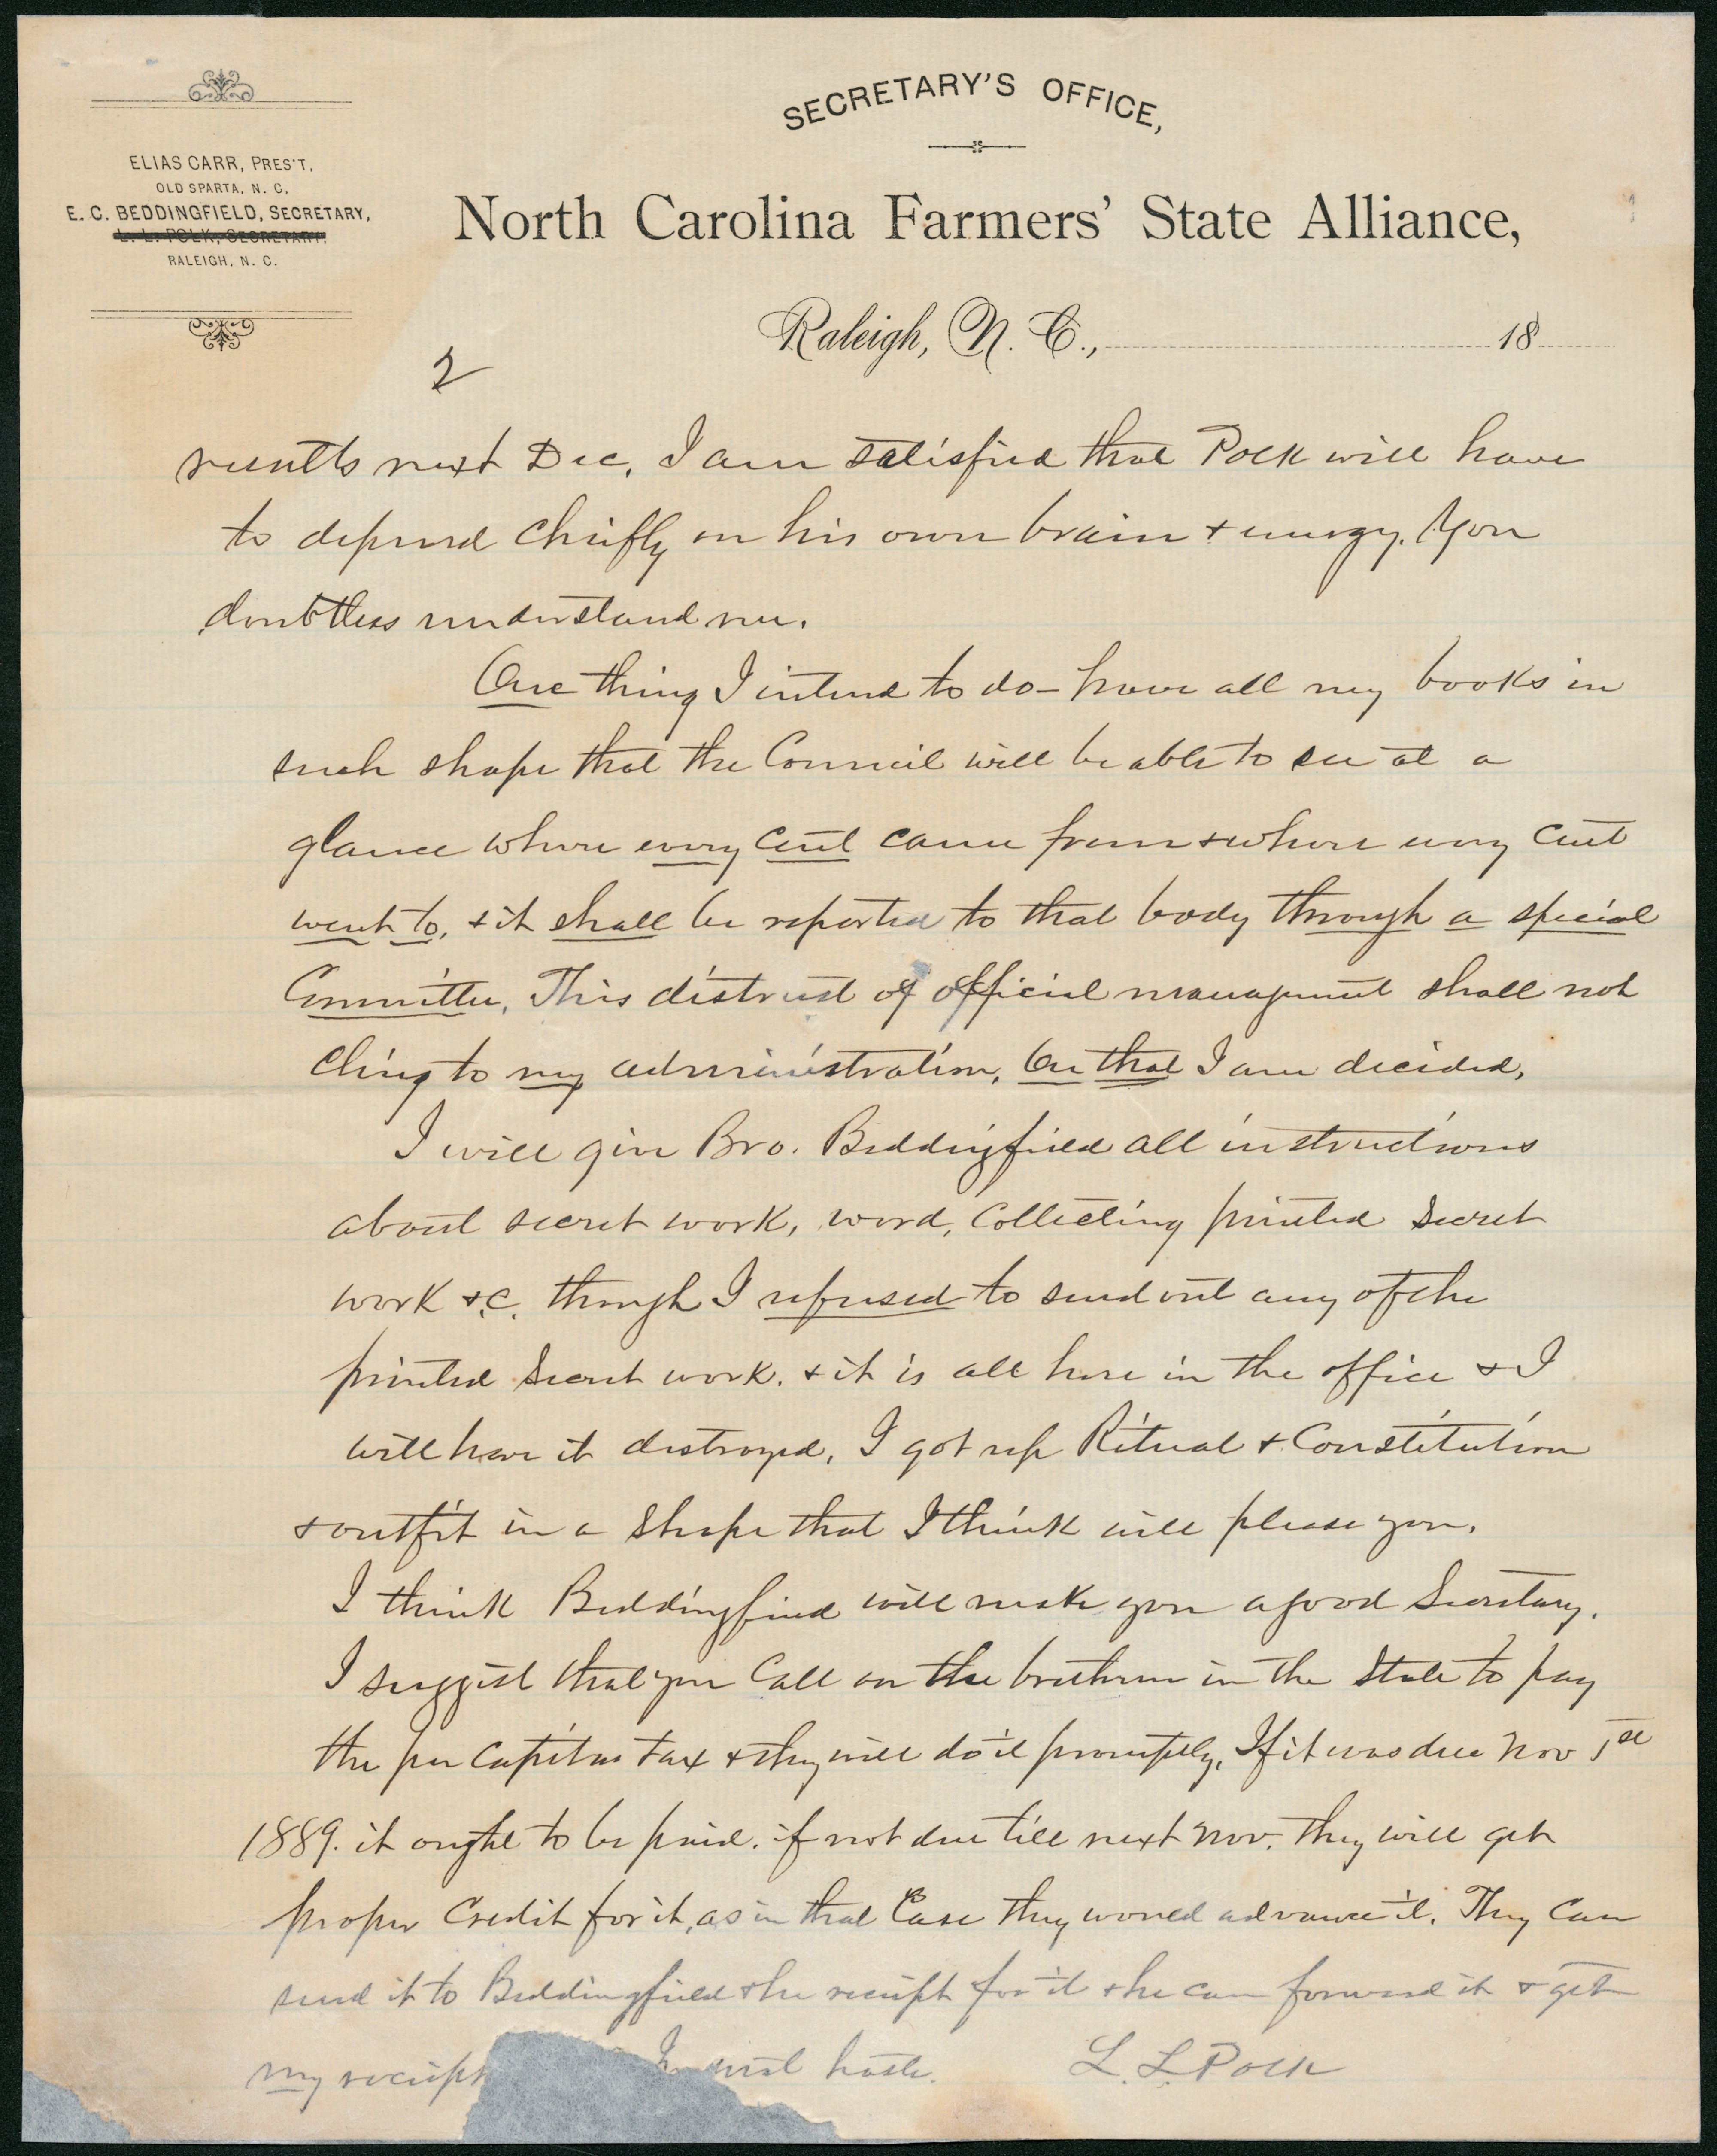 SECRETARY'S OFFICE,
ELIAS CARR, PRES'T,
OLD SPARTA, N. C,
E. C. BEDDINGFIELD, SECRETARY,
L. L. POLK, SECRETARY,
RALEIGH, N. C.
North Carolina Farmers' State Alliance,
Raleigh, N. C., 18
2
results next Dec, I am satisfied that Polk will have
to depend chiefly on his own brain & energy. You
doubtless understand me.
One thing I intend to do – have all my books in
such shape that the Council will be able to see at a
glance where every cent came from & where every cent
went to, & it shall be reported to that body through a special
Committee. This distrust of official management shall not
cling to my administration, On that I am decided,
I will give Bro. Beddingfield all instructions
about secret work, word, Collecting printed Secret
work &c. though I refused to send out any of the
printed Secret work. & it is all here in the office & I
will have it destroyed, I got up Ritual & Constitution
& outfit in a shape that I think will please you.
I think Beddingfield will make you a good Secretary.
I suggest that you Call on the brethren in the State to pay
the per capita tax & they will do it promptly, If it was due Nov 1st
1889. it ought to be paid. if not due till next Nov. they will get
proper Credit for it, as in that Case they would advance it. They Can
send it to Beddingfield & he receipt for it & he can forward it & get
my receipt haste. L. L. Polk